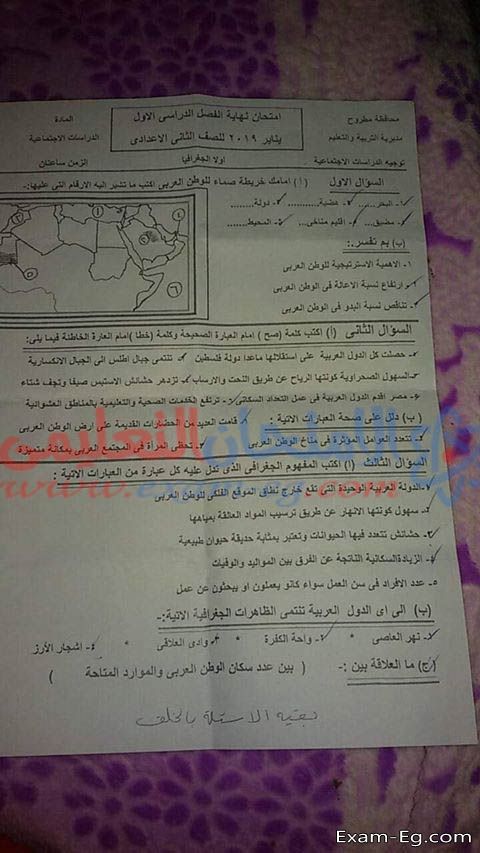 محافظة مطروح
مديرية التربية والتعليم
توجيه الدراسات الاجتماعية
امتحان نهاية الفصل الدراسى الاول
يناير ٢٠١٩ للصف الثانى الاعدادى
اولا الجغرافيا
المادة
الدراسات الاجتماعية
الزمن ساعتان
السؤال الاول (ا) امامك خريطة صماء للوطن العربى اكتب ما تشير اليه الارقام التى عليها:-
١- البحر....... ٢- هضبة.......... ٣- دولة..........
٤- مضيق.... ٥- اقليم مناخى.... ٦- المحيط..........
(ب) بم تفسر :-
١- الاهمية الاستراتيجية للوطن العربى
٢- ارتفاع نسبة الاعالة فى الوطن العربى
٣- تناقص نسبة البدو فى الوطن العربى
السؤال الثانى (ا) اكتب كلمة (صح) امام العبارة الصحيحة وكلمة (خطا) امام العبارة الخاطئة فيما يلى:
١- حصلت كل الدول العربية على استقلالها ماعدا دولة فلسطين ٢- تنتمى جبال اطلس الى الجبال الانكسارية
٣- السهول الصحراوية كونتها الرياح عن طريق النحت والارساب ٤- تزدهر حشائش الاستبس صيفا وتجف شتاء
٥- مصر اقدم الدول العربية فى عمل التعداد السكانى ٦- ترتفع الخدمات الصحية والتعليمية بالمناطق العشوائية
(ب) دلل على صحة العبارات الاتية : ١- قامت العديد من الحضارات القديمة على ارض الوطن العربى
٢- تتعدد العوامل المؤثرة فى مناخ الوطن العربى ٣- تحظى المرأة فى المجتمع العربى بمكانة متميزة
السؤال الثالث (ا) اكتب المفهوم الجغرافى الذى تدل عليه كل عبارة من العبارات الاتية :
١- الدولة العربية الوحيدة التى تقع خارج نطاق الموقع الفلكى للوطن العربى
٢- سهول كونتها الانهار عن طريق ترسيب المواد العالقة بمياهها
٣- حشائش تتعدد فيها الحيوانات وتعتبر بمثابة حديقة حيوان طبيعية
٤- الزيادةالسكانية الناتجة عن الفرق بين المواليد والوفيات
٥- عدد الافراد فى سن العمل سواء كانو يعملون او يبحثون عن عمل
(ب) الى اى الدول العربية تنتمى الظاهرات الجغرافية الاتية:-
١- نهر العاصى * ٢- واحة الكفرة * ٣- وادى العلاقى * ٤- اشجار الأرز
(ج) ما العلاقة بين :- ( بين عدد سكان الوطن العربى والموارد المتاحة )
بقية الاسئلة بالخلف
Exam-Eg.com